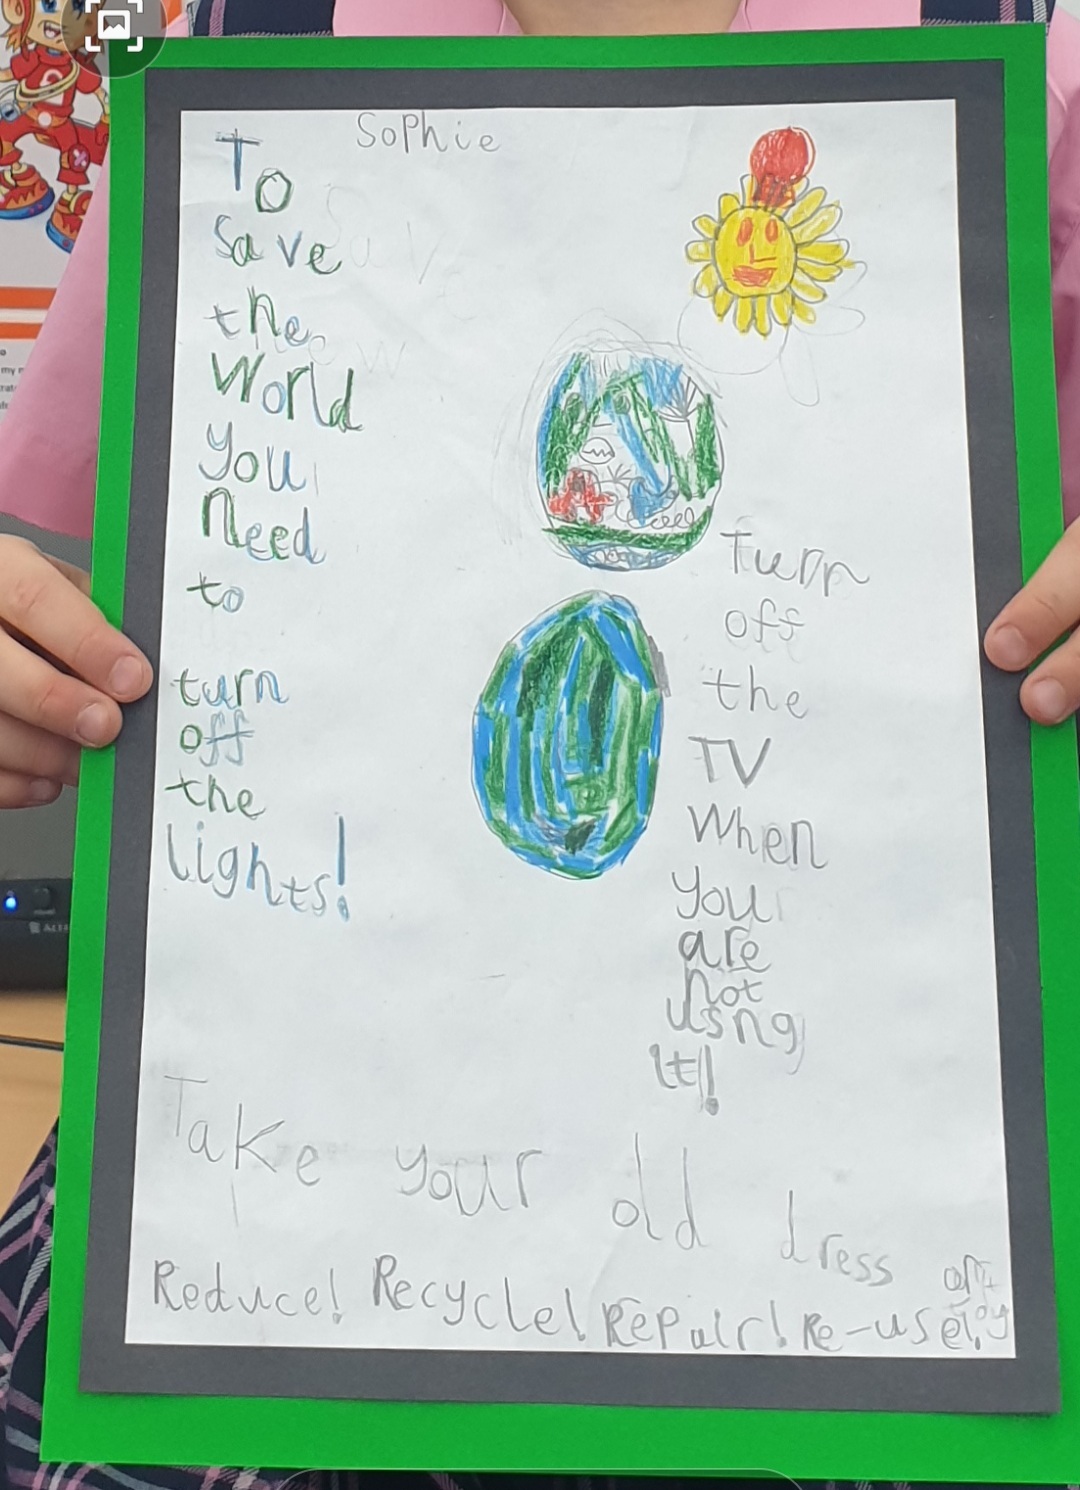 Sophie
To
save
the
World
you
Need
to
turn
off
the
Lights!
Turn
off
the
TV
When
you
are
not
usng
it!
Take your old dress
Reduce! Recycle! Repair! Re-use!